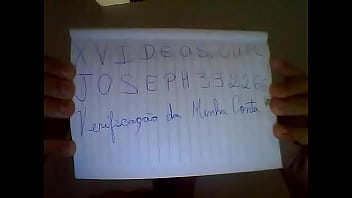 XVIDEOS.COM
JOSEPH33226
Verificação da Minha Conta